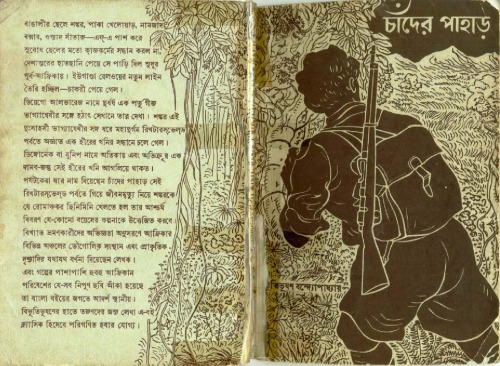 বাঙালীর ছেলে শঙ্কর, পাকা খেলোয়াড়, নামজাদা
বক্সার, ওস্তাদ সাঁতারু—এফ্-এ পাশ করে
সুবোধ ছেলের মতো কাজকর্মের সন্ধান করল না,
দেশান্তরের হাতছানি পেয়ে সে পাড়ি দিল সুদূর
পূর্ব-আফ্রিকায়। ইউগাণ্ডা রেলওয়ের নতুন লাইন
তৈরি হচ্ছিল—চাকরী পেয়ে গেল।
ডিয়েগো আলভারেজ নামে দুর্ধর্ষ এক পর্তুগীজ
ভাগ্যান্বেষীর সঙ্গে হঠাৎ সেখানে তার দেখা। শঙ্কর এই
দুঃসাহসী ভাগ্যান্বেষীর সঙ্গ ধরে মহাদুর্গম রিখটারস্‌ভেল্ড
পর্বতে অজ্ঞাত এক হীরের খনির সন্ধানে চলে গেল।
ডিঙ্গোনেক বা বুনিপ নামে অতিকায় এবং অতিক্রূর এক
দানব-জন্তু সেই হীরের খনি আগলিয়ে থাকত।
পর্যটকেরা যার নাম দিয়েছেন চাঁদের পাহাড় সেই
রিখটারস্‌ভেল্ড পর্বতে গিয়ে জীবনমৃত্যু নিয়ে শঙ্করকে
যে রোমাঞ্চকর ছিনিমিনি খেলতে হল তার আশ্চর্য
বিবরণ যে-কোনো বয়েসের কল্পনাকে উত্তেজিত করবে
বিখ্যাত ভ্রমণকারীদের অভিজ্ঞতা অনুসরণে আফ্রিকার
বিভিন্ন অঞ্চলের ভৌগোলিক সংস্থান এবং প্রাকৃতিক
দৃশ্যাদির যথাযথ বর্ণনা দিয়েছেন লেখক।
এবং গল্পের পাশাপাশি হুবহু আফ্রিকান
পরিবেশের যে-সব নিপুণ ছবি আঁকা হয়েছে
তা বাংলা বইয়ের জগতে আদর্শ স্থানীয়।
বিভূতিভূষণের হাতে তরুণদের জন্য লেখা এ-বই
ক্ল্যাসিক হিসেবে পরিগণিত হবার যোগ্য।
চাঁদের পাহাড়
বিভূতিভূষণ বন্দ্যোপাধ্যায়